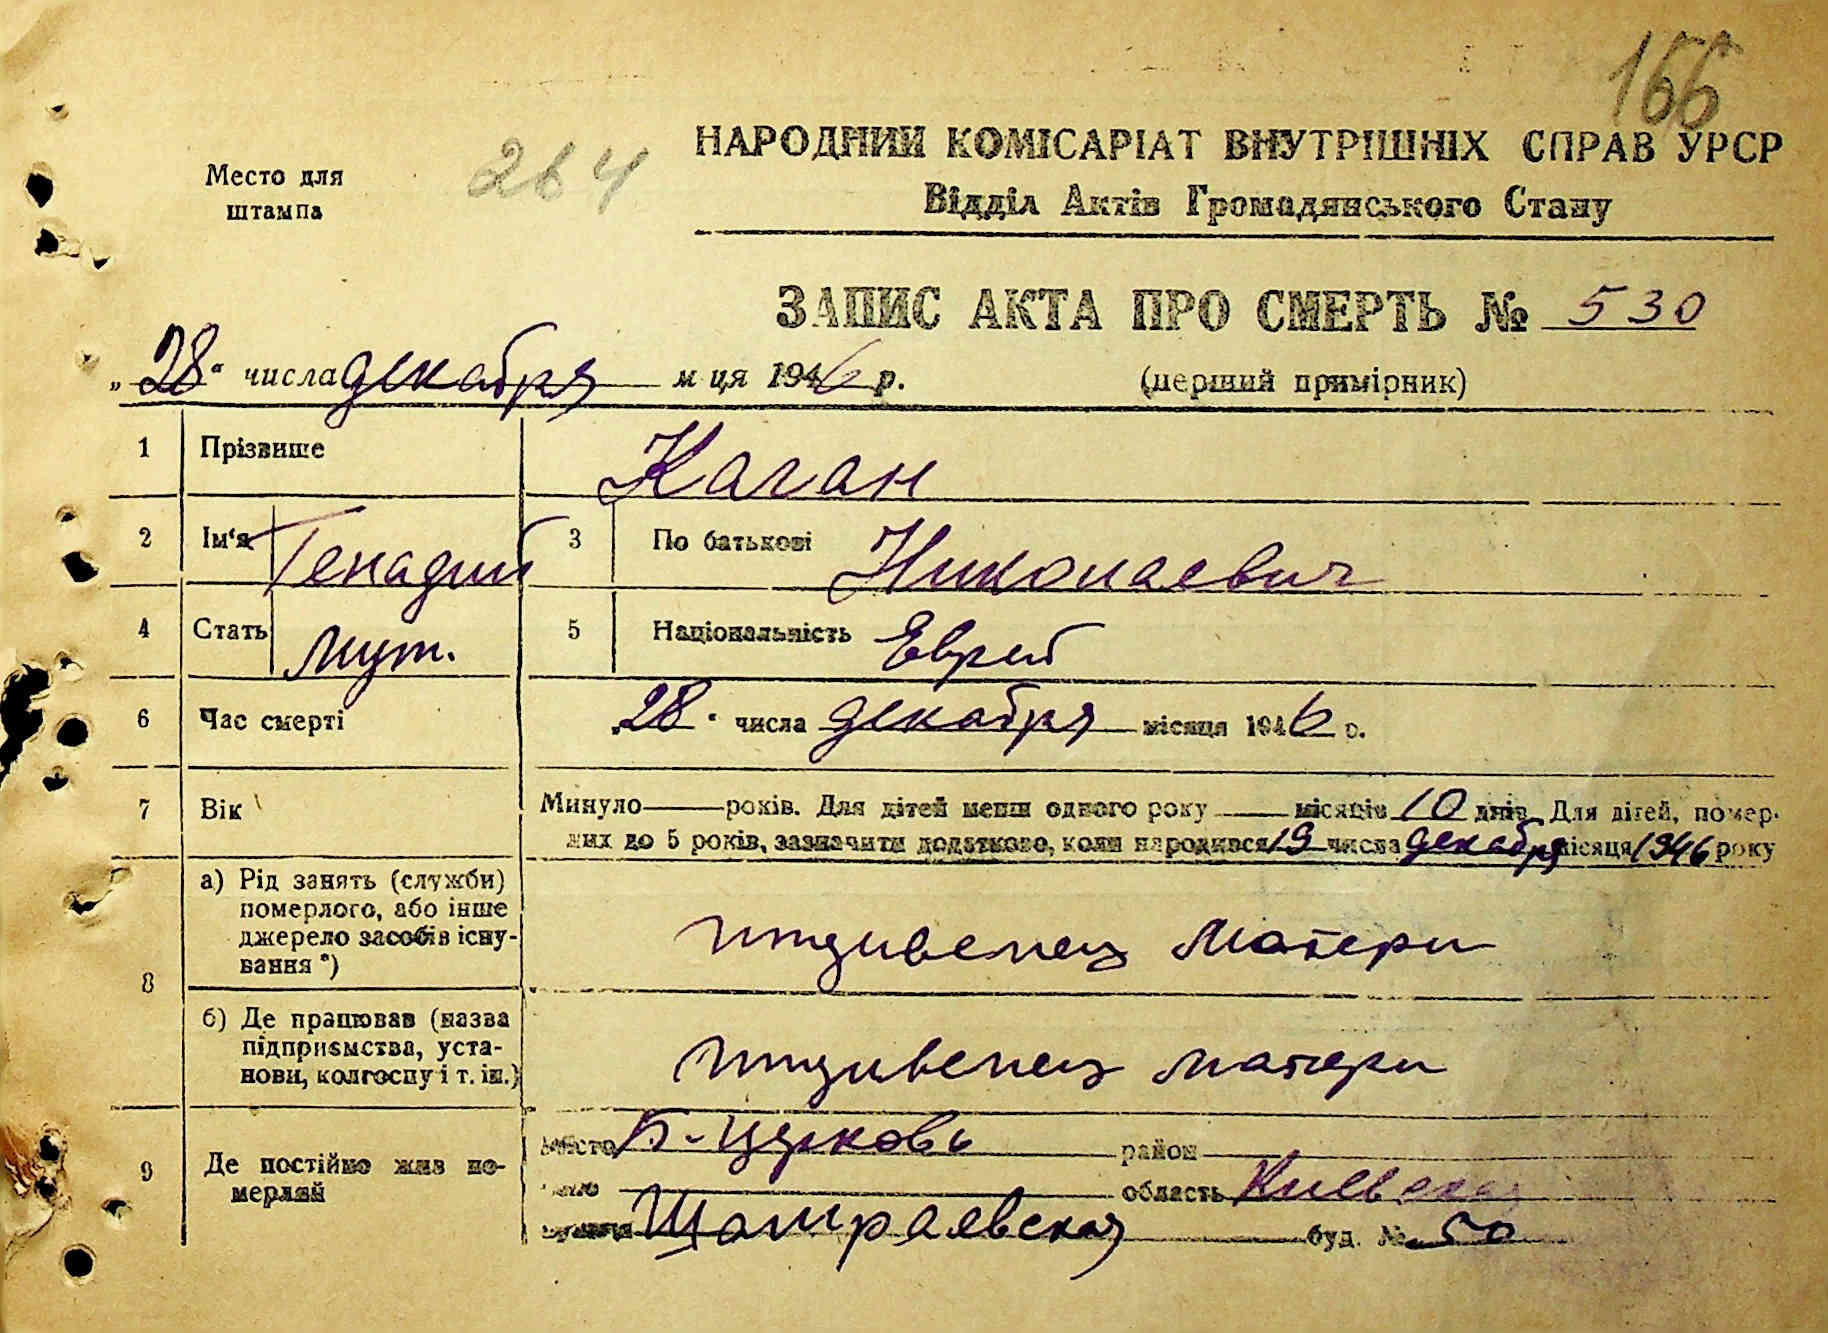 166
264
Место для
штампа
НАРОДНИЙ КОМІСАРІАТ ВНУТРІШНІХ СПРАВ УРСР
Відділ Актів Громадянського Стану
ЗАПИС АКТА ПРО СМЕРТЬ № 530
„28“ числа декабря м-ця 1946 р.
(перший примірник)
1 Прізвище Каган
2 Ім'я Генадий 3 По батькові Николаевич
4 Стать муж. 5 Національність Еврей
6 Час смерті „28“ числа декабря місяця 1946 р.
7 Вік Минуло — років. Для дітей менш одного року — місяців 10 днів. Для дітей, помер-
лих до 5 років, зазначити додатково, коли народився 19 числа декабря місяця 1946 року
8 а) Рід занять (служби)
померлого, або інше
джерело засобів існу-
вання *)
иждивенец матери
б) Де працював (назва
підприємства, уста-
нови, колгоспу і т. ін.)
иждивенец матери
9 Де постійно жив по-
мерлий
Місто Б-Церковь район
село область Киевская
вулиця буд. № 50